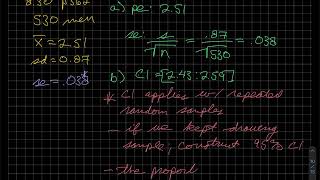 8.30 p362
530 men
x̄ = 2.51
sd = 0.87
se = .038
a) pe: 2.51
se: s/√n = .87/√530 = .038
b) CI = [2.43 : 2.59]
* CI applies w/ repeated
random samples
- if we kept drawing
sample, construct 95% CI
- the proport